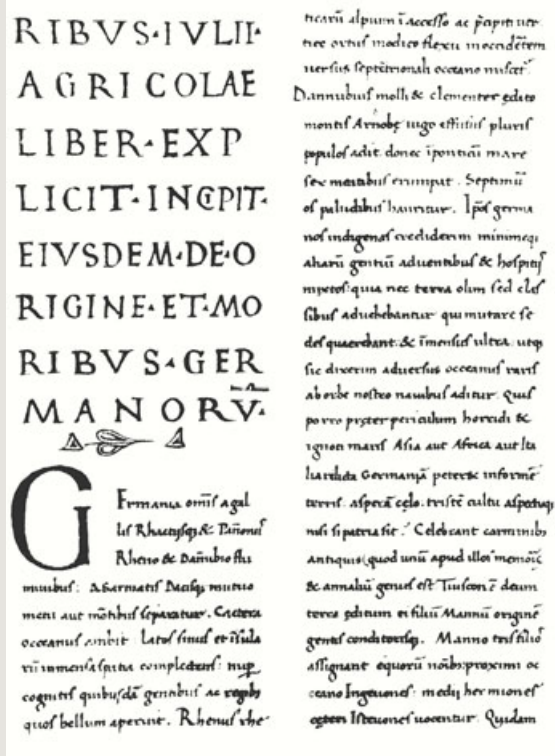 RIBVS·IVLII·
AGRICOLAE
LIBER·EXP
LICIT·INCIPIT·
EIVSDEM·DE·O
RIGINE·ET·MO
RIBVS·GER
MANORV̄·
Germania om̄is a gal
lis Rhaetisq; & Pan̄oniis
Rheno & Danubio flu
minibus: A Sarmatis Dacisq; mutuo
metu aut mōtibus separatur. Caetera
occeanus ambit latos sinus et īsula
rū immensa spatia complectens: nup̄
cognitis quibusdā gentibus ac regibus
quos bellum aperuit. Rhenus rhe
ticarū alpium ī accesso ac p̄cipiti ver
tice ortus modico flexu in occidētem
versus septētrionali occeano miscet᷑.
Dannubius molli & clementer edito
montis Arnobę iugo effusus pluris
populos adit donec ī ponticū mare
sex meatibus erumpat. Septimū
os paludibus hauritur. Ip̄os germa
nos indigenas crediderim minimeq;
aliarū gentiū adventibus & hospitiis
mixtos: quia nec terra olim sed clas
sibus advehebantur qui mutare se
des quaerebant: & īmensus ultra: utq;
sic dixerim adversus occeanus raris
ab orbe nostro navibus aditur. Quis
porro pręter periculum horridi &
ignoti maris Asia aut Africa aut Ita
lia relicta Germaniā peteret informē
terris. asperā cęlo. tristē cultu aspectuq;
nisi si patria sit. Celebrant carminib;
antiquis (quod unū apud illos memorię
& annaliū genus est Tuisconē deum
terra editum ei filiū Mannū originē
gentis conditorisq;. Manno tris filios
assignant equorū noīb; proximi oc
ceano Ingevones: medii hermiones
ceteri Istevones vocentur. Quidam